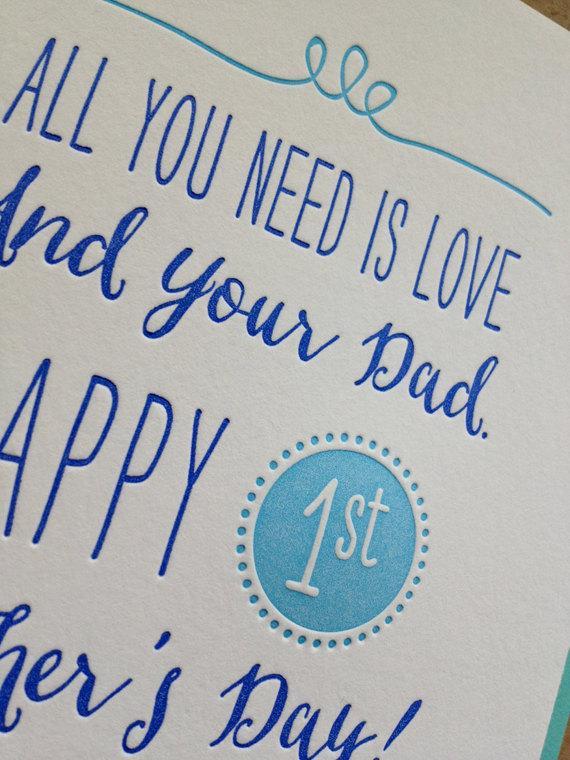 ALL YOU NEED IS LOVE
And your Dad.
APPY 1st
her's Day!